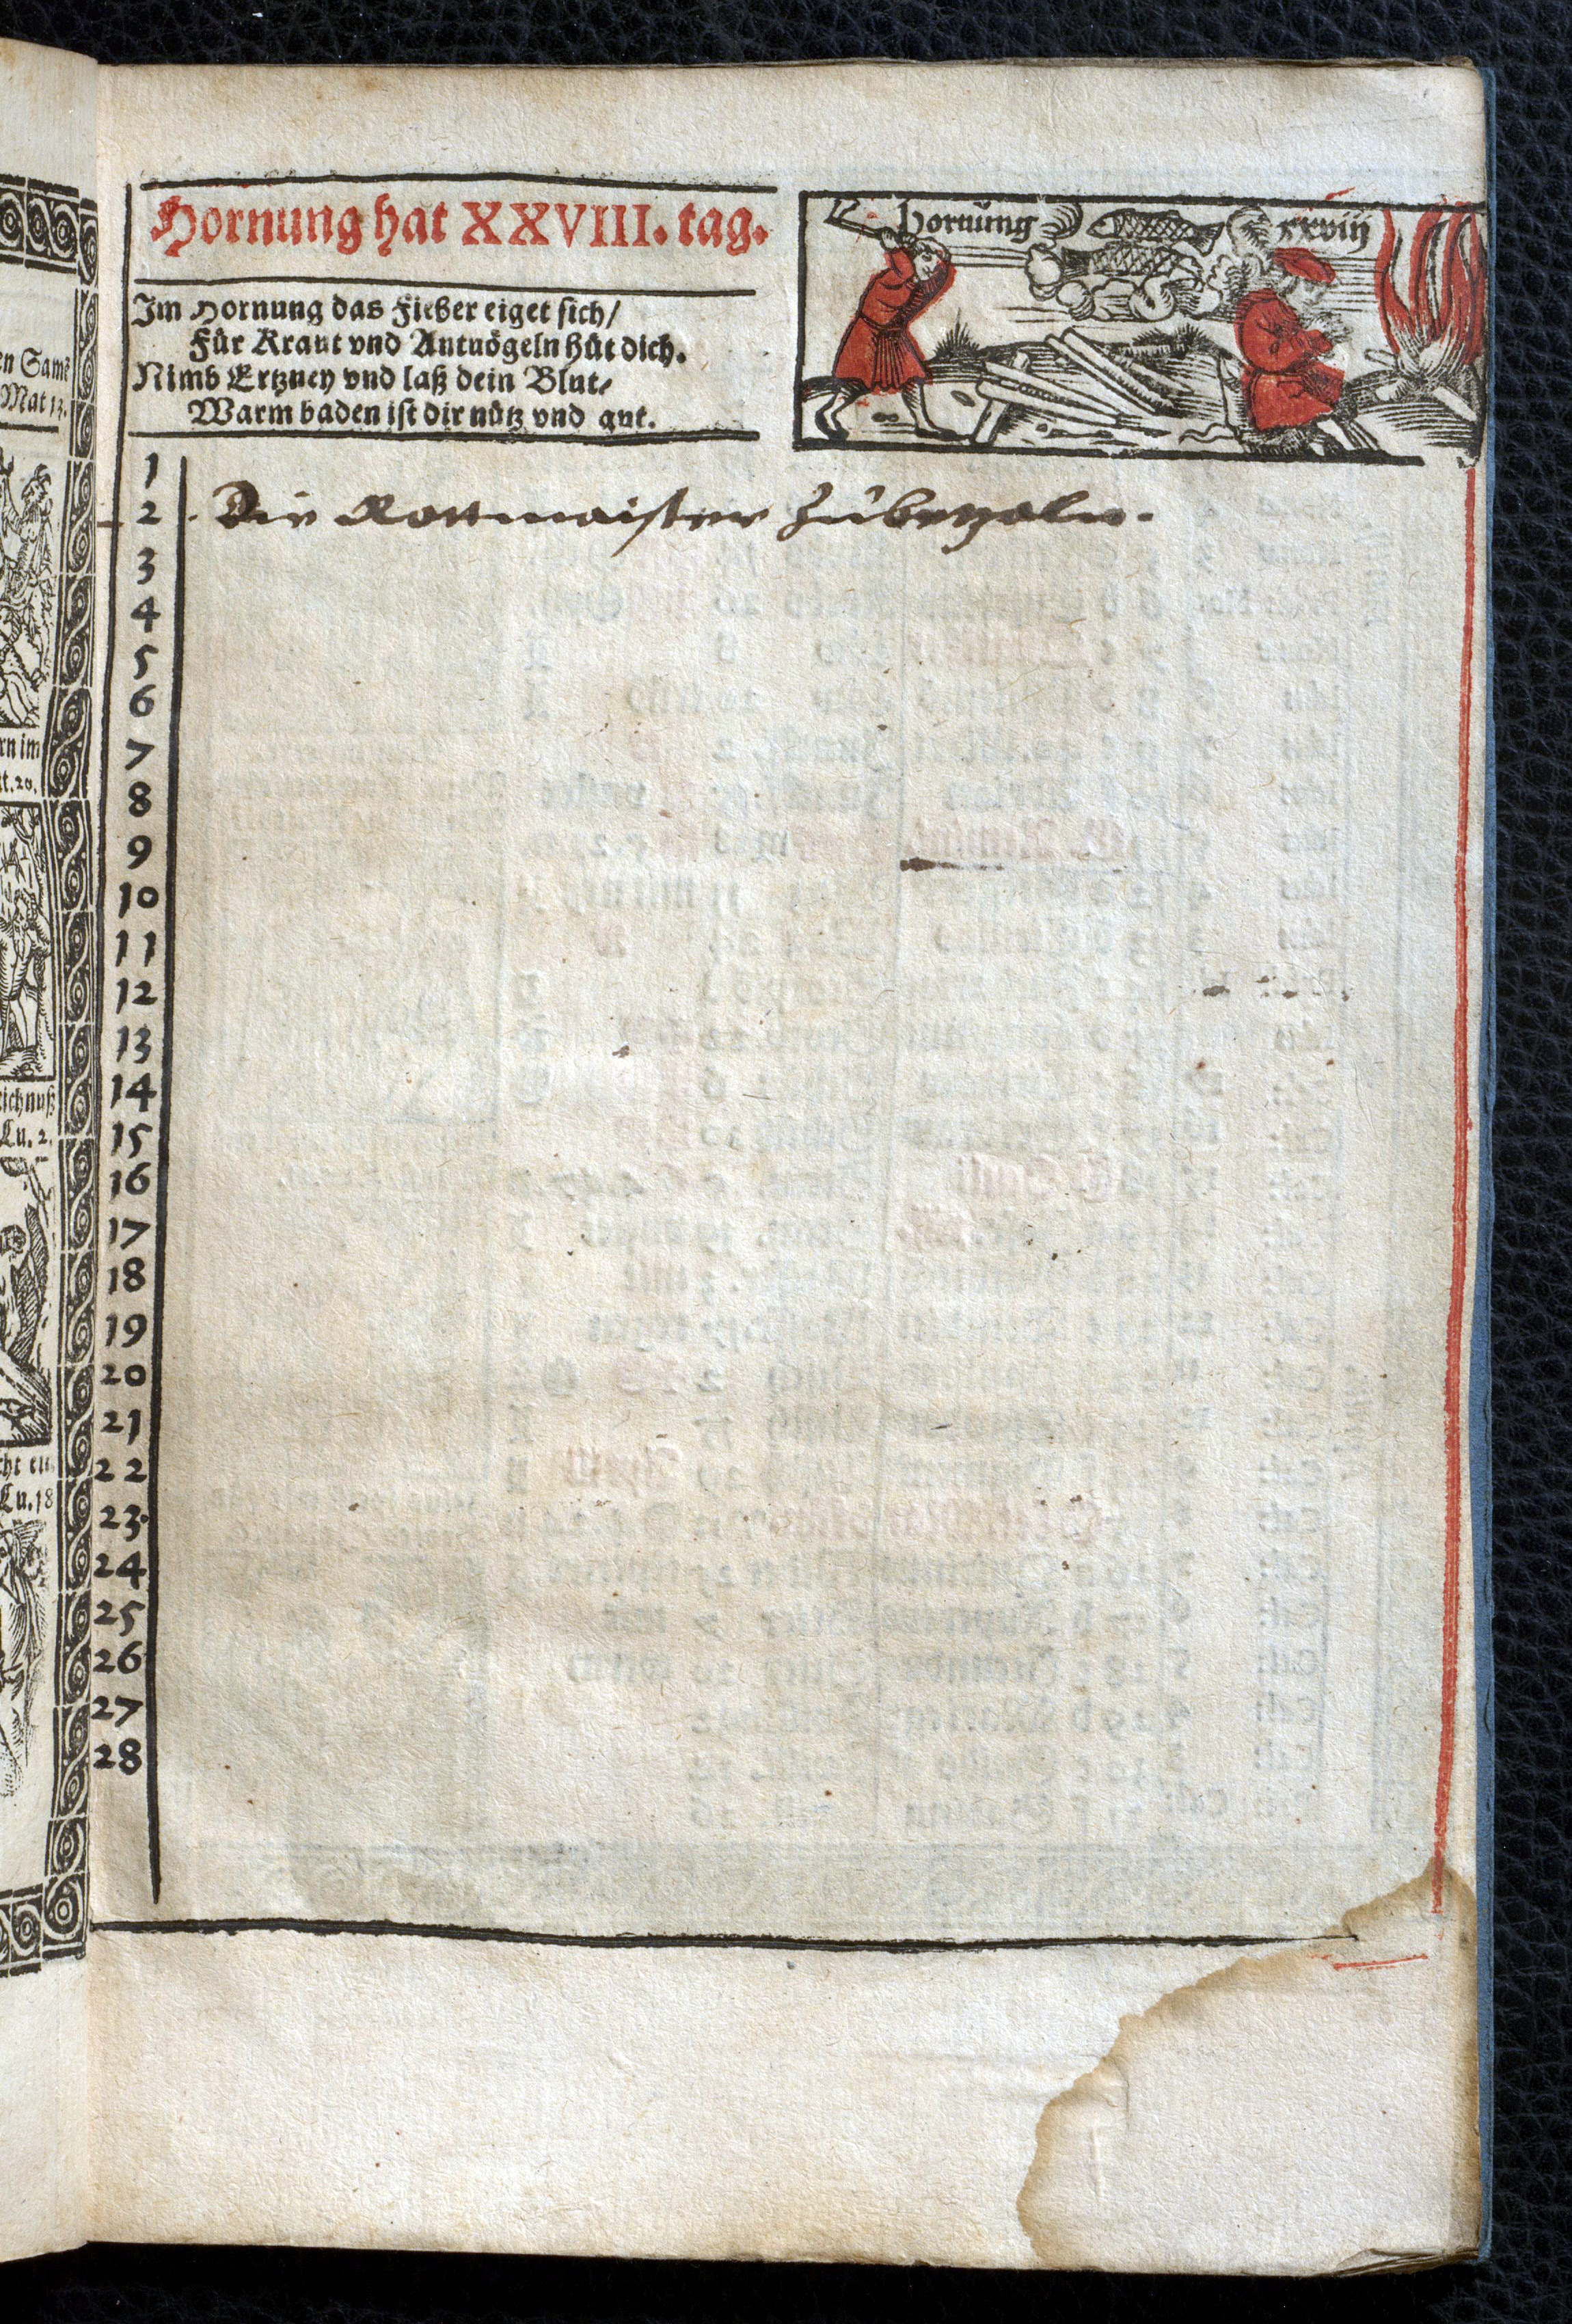 Hornung hat XXVIII. tag.
hornung xxviij
Im Hornung das Fieber eiget sich/
Für Kraut vnd Antuögeln hüt dich.
Nimb Ertzney vnd laß dein Blut/
Warm baden ist dir nütz vnd gut.
1
2 Die Rottmaister zubetzaln.
3
4
5
6
7
8
9
10
11
12
13
14
15
16
17
18
19
20
21
22
23
24
25
26
27
28
en Samẽ
Mat 13.
rn im
t. 20.
eichnuß
Lu. 2.
Lu. 18